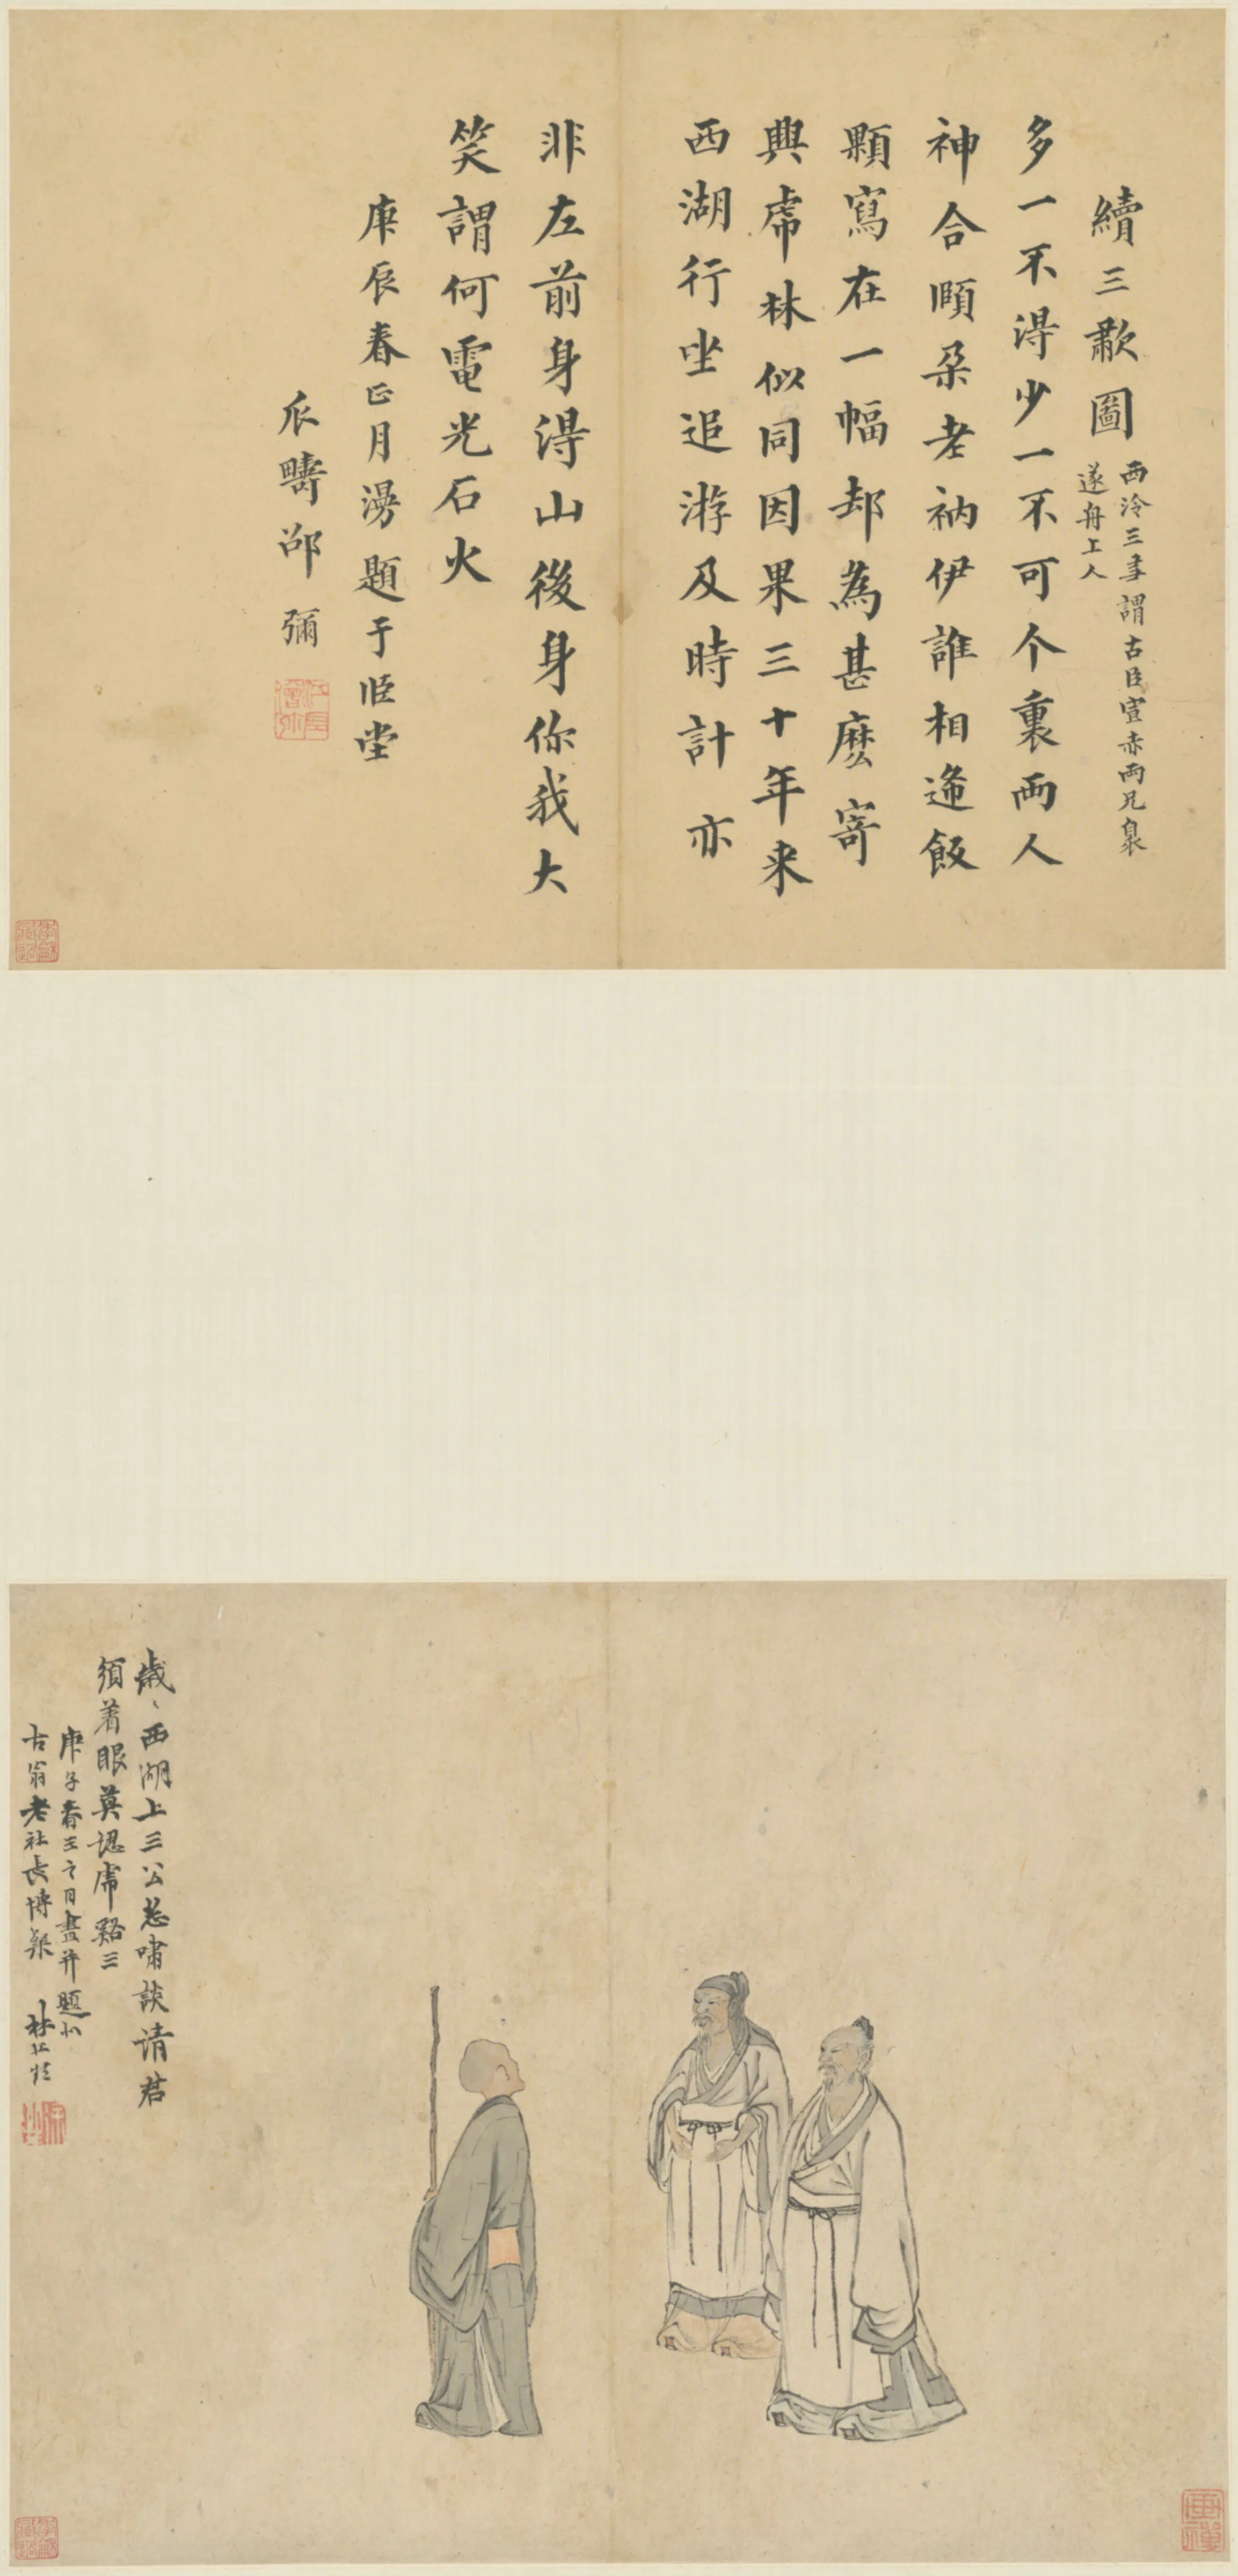 續三歗圖
西泠三㕛謂古臣宣赤兩兄泉
遂舟上人
多一不得少一不可个裏兩人
神合頤朶老衲伊誰相逢飯
顆寫在一幅却為甚麽寄
興虎林似同因果三十年来
西湖行坐追游及時計亦
非左前身得山後身你我大
笑謂何電光石火
庚辰春正月漫題于頤堂
瓜疇邵彌
歲〻西湖上三公恣嘯談请君
須着眼莫認虎谿三
庚子春王之月畫并題似
古翁老社長博粲